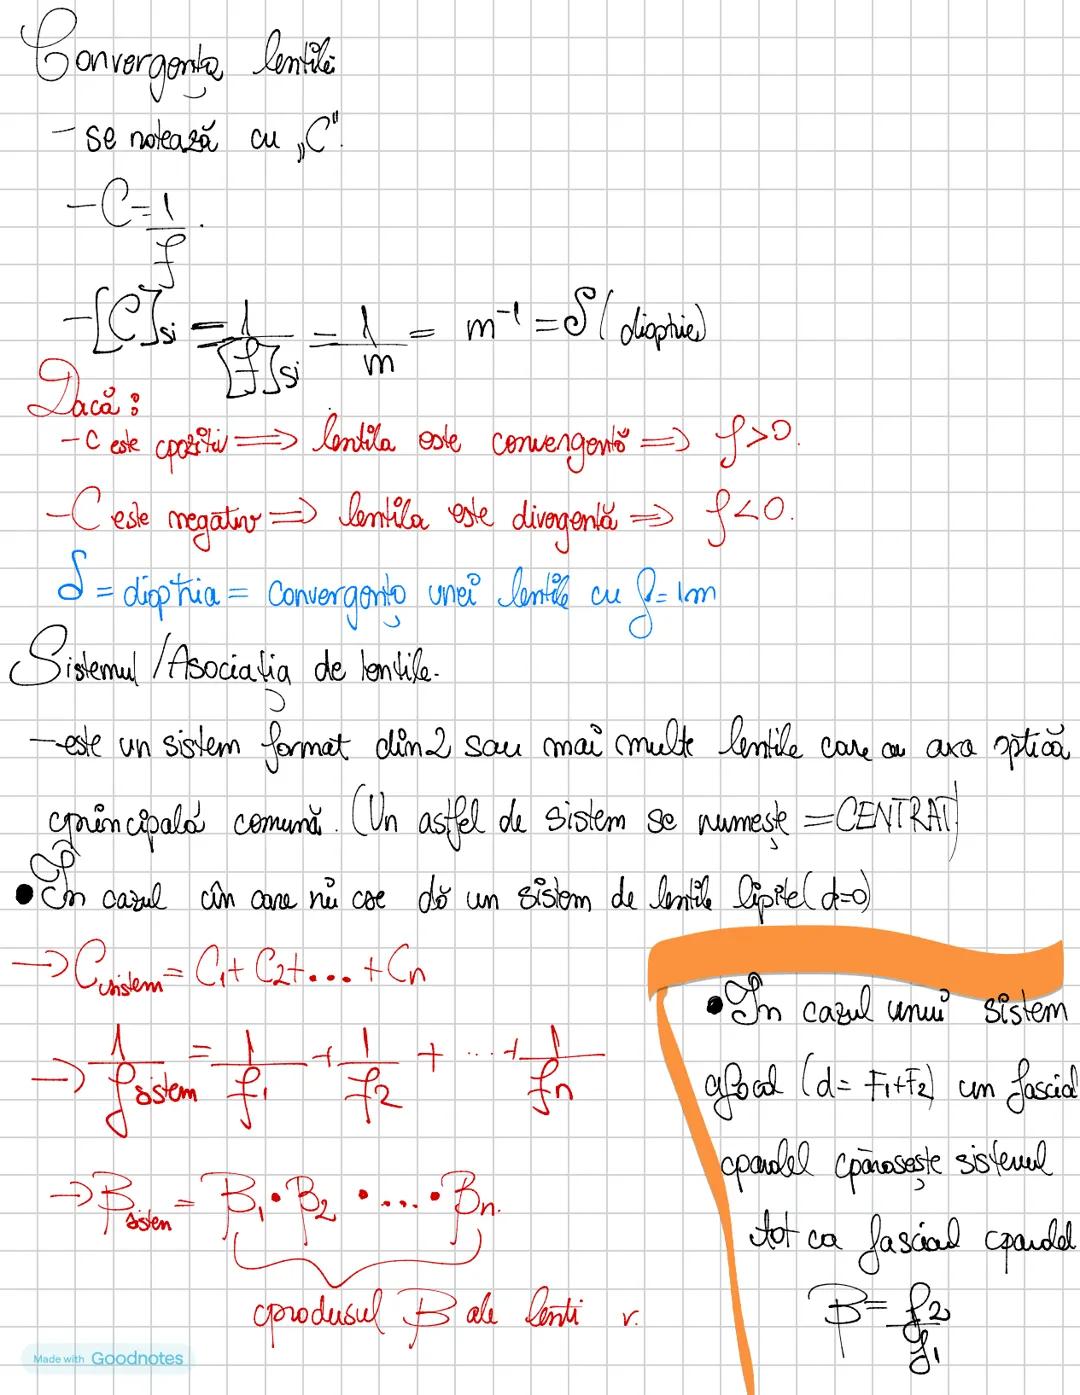 Convergența lentilei
- se notează cu „C".
- C = 1/f.
- [C]si = 1/[f]si = 1/m = m⁻¹ = δ (dioptrie)
Dacă:
- C este pozitiv ⟹ lentila este convergentă ⟹ f>0.
- C este negativ ⟹ lentila este divergentă ⟹ f<0.
δ = dioptria = convergența unei lentile cu f=1m
Sistemul /Asociația de lentile.
- este un sistem format din 2 sau mai multe lentile care au axa optică
principală comună. (Un astfel de sistem se numește = CENTRAT)
• În cazul în care ni se dă un sistem de lentile lipite (d=0)
→ Csistem = C1 + C2 + ... + Cn
→ 1/fsistem = 1/f1 + 1/f2 + ... + 1/fn
→ βsistem = β1 • β2 • .... • βn.
produsul β ale lenti r.
• În cazul unui sistem
afocal (d = F1+F2) un fascicul
paralel părăsește sistemul
tot ca fascicul paralel
β = f2/f1
Made with Goodnotes